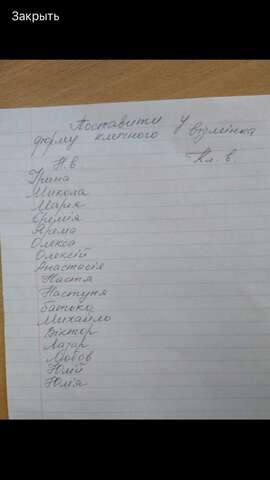 Закрыть
Поставити у
форму кличного відмінка
Н. в
Кл. в.
Ірина
Микола
Марія
Єремія
Ярема
Олекса
Олексій
Анастасія
Настя
Настуня
Батько
Михайло
Віктор
Лазар
Любов
Юлій
Юлія